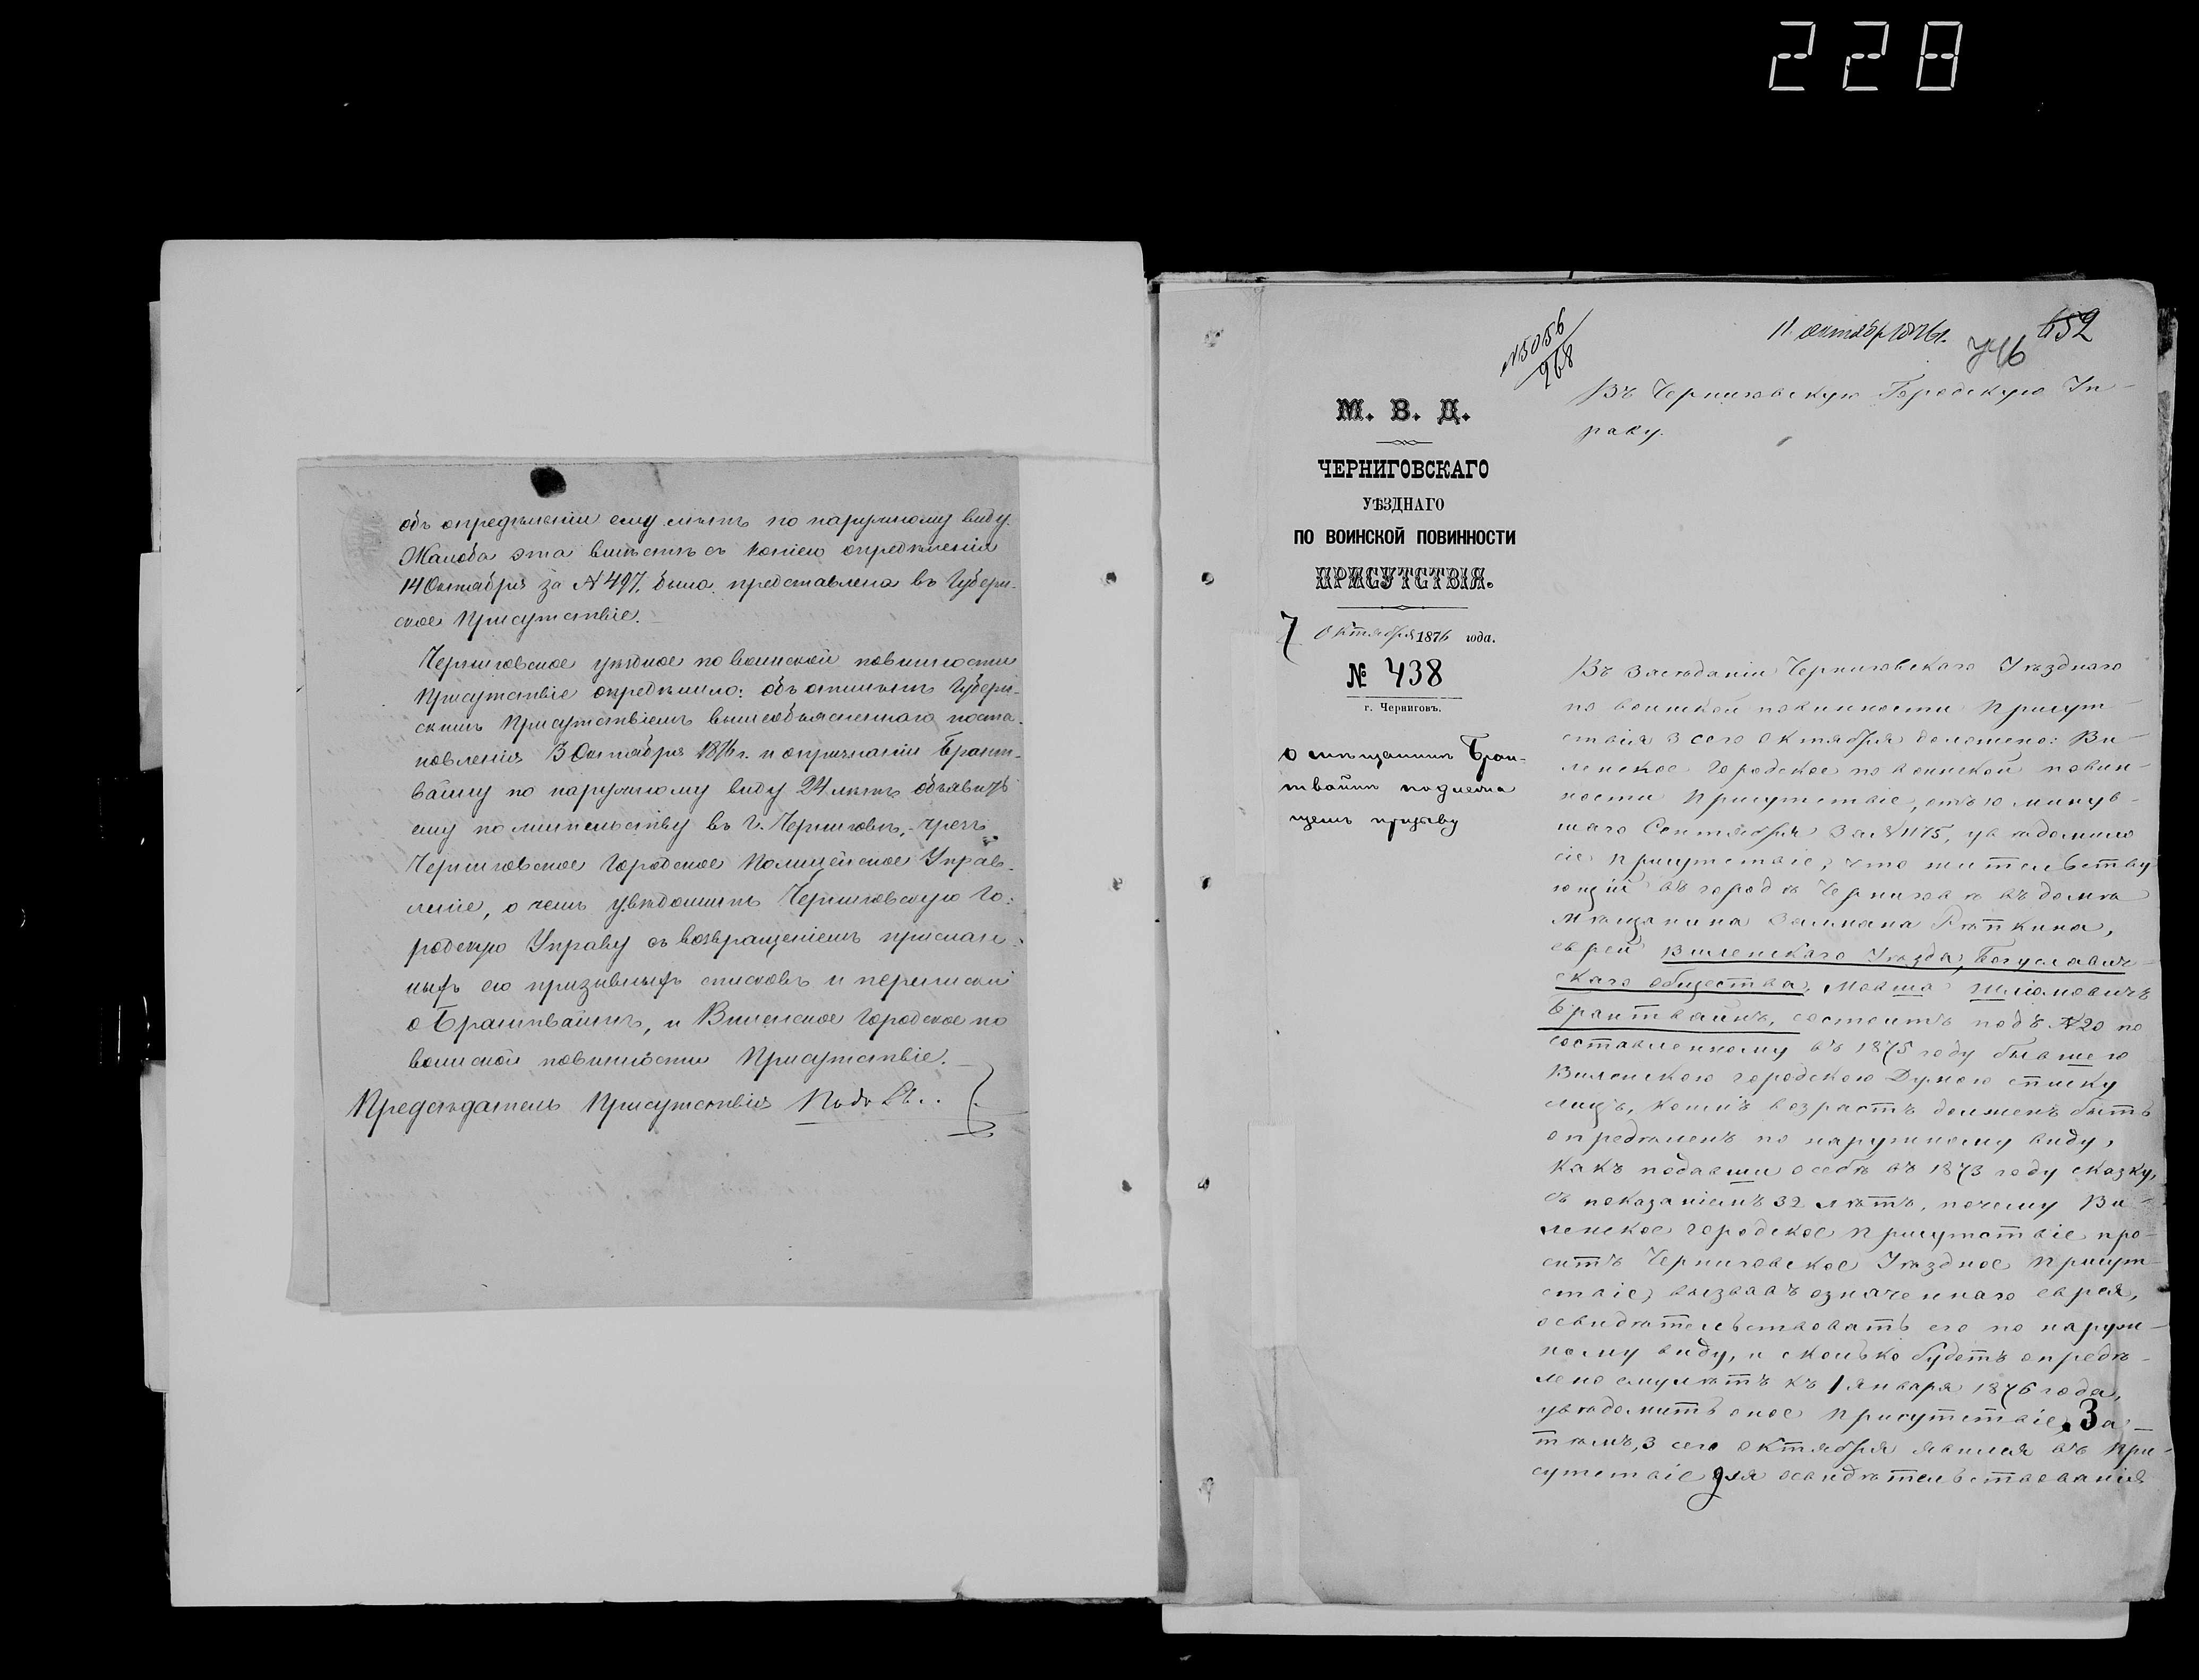 228
объ опредѣленіи ему лѣтъ по наружному виду.
Жалоба эта вмѣстѣ съ копіею опредѣленія
14 Октября за № 497, была представлена въ Губерн-
ское Присутствіе.
Черниговское уѣздное по воинской повинности
Присутствіе опредѣлило: объ отмѣнѣ Губерн-
скимъ Присутствіемъ вышеобъясненнаго поста-
новленія 3 Октября 1876 г. и о признаніи Брант-
вайну по наружному виду 24 лѣтъ объявить
ему по жительству въ г. Черниговѣ, чрезъ
Черниговское Городское Полицейское Управ-
леніе, о чемъ увѣдомить Черниговскую Го-
родскую Управу съ возвращеніемъ прислан-
ныхъ ею призывныхъ списковъ и переписки
о Брантвайнѣ, и Виленское Городское по
воинской повинности Присутствіе.
Предсѣдатель Присутствія
№ 5056
268
11 октября 1876 г.
746
652
Въ Черниговскую Городскую Уп-
раву.
М. В. Д.
ЧЕРНИГОВСКАГО
УѢЗДНАГО
ПО ВОИНСКОЙ ПОВИННОСТИ
ПРИСУТСТВІЯ.
7 Октября 1876 года.
№ 438
г. Черниговъ.
О мѣщанинѣ Бран-
твайнѣ подлежа
щемъ призыву
Въ засѣданіи Черниговскаго Уѣзднаго
по воинской повинности Присут-
ствія 3 сего Октября доложено: Ви-
ленское Городское по воинской повин-
ности Присутствіе, отъ 10 минув-
шаго Сентября за № 1175, увѣдомило
сіе Присутствіе, что жительству
ющій въ городѣ Черниговѣ въ домѣ
мѣщанина Залмана Рѣпкина,
еврей Виленскаго Уѣзда, Богуславиш-
скаго общества, Мовша Шліомовичъ
Брантвайнъ, состоитъ подъ № 20 по
составленному въ 1875 году бывшею
Виленскою городскою Думою списку
лицъ, коихъ возрастъ долженъ быть
опредѣленъ по наружному виду,
какъ подавши о себѣ въ 1873 году сказку,
съ показаніемъ 32 лѣтъ, почему Ви-
ленское городское Присутствіе про-
ситъ Черниговское Уѣздное Присут-
ствіе, вызвавъ означеннаго еврея,
освидѣтельствовать его по наруж-
ному виду, и сколько будетъ опредѣ-
лено ему лѣтъ къ 1 Января 1876 года,
увѣдомить оное Присутствіе. За-
тѣмъ, 3 сего Октября явился въ При-
сутствіе для освидѣтельствованія